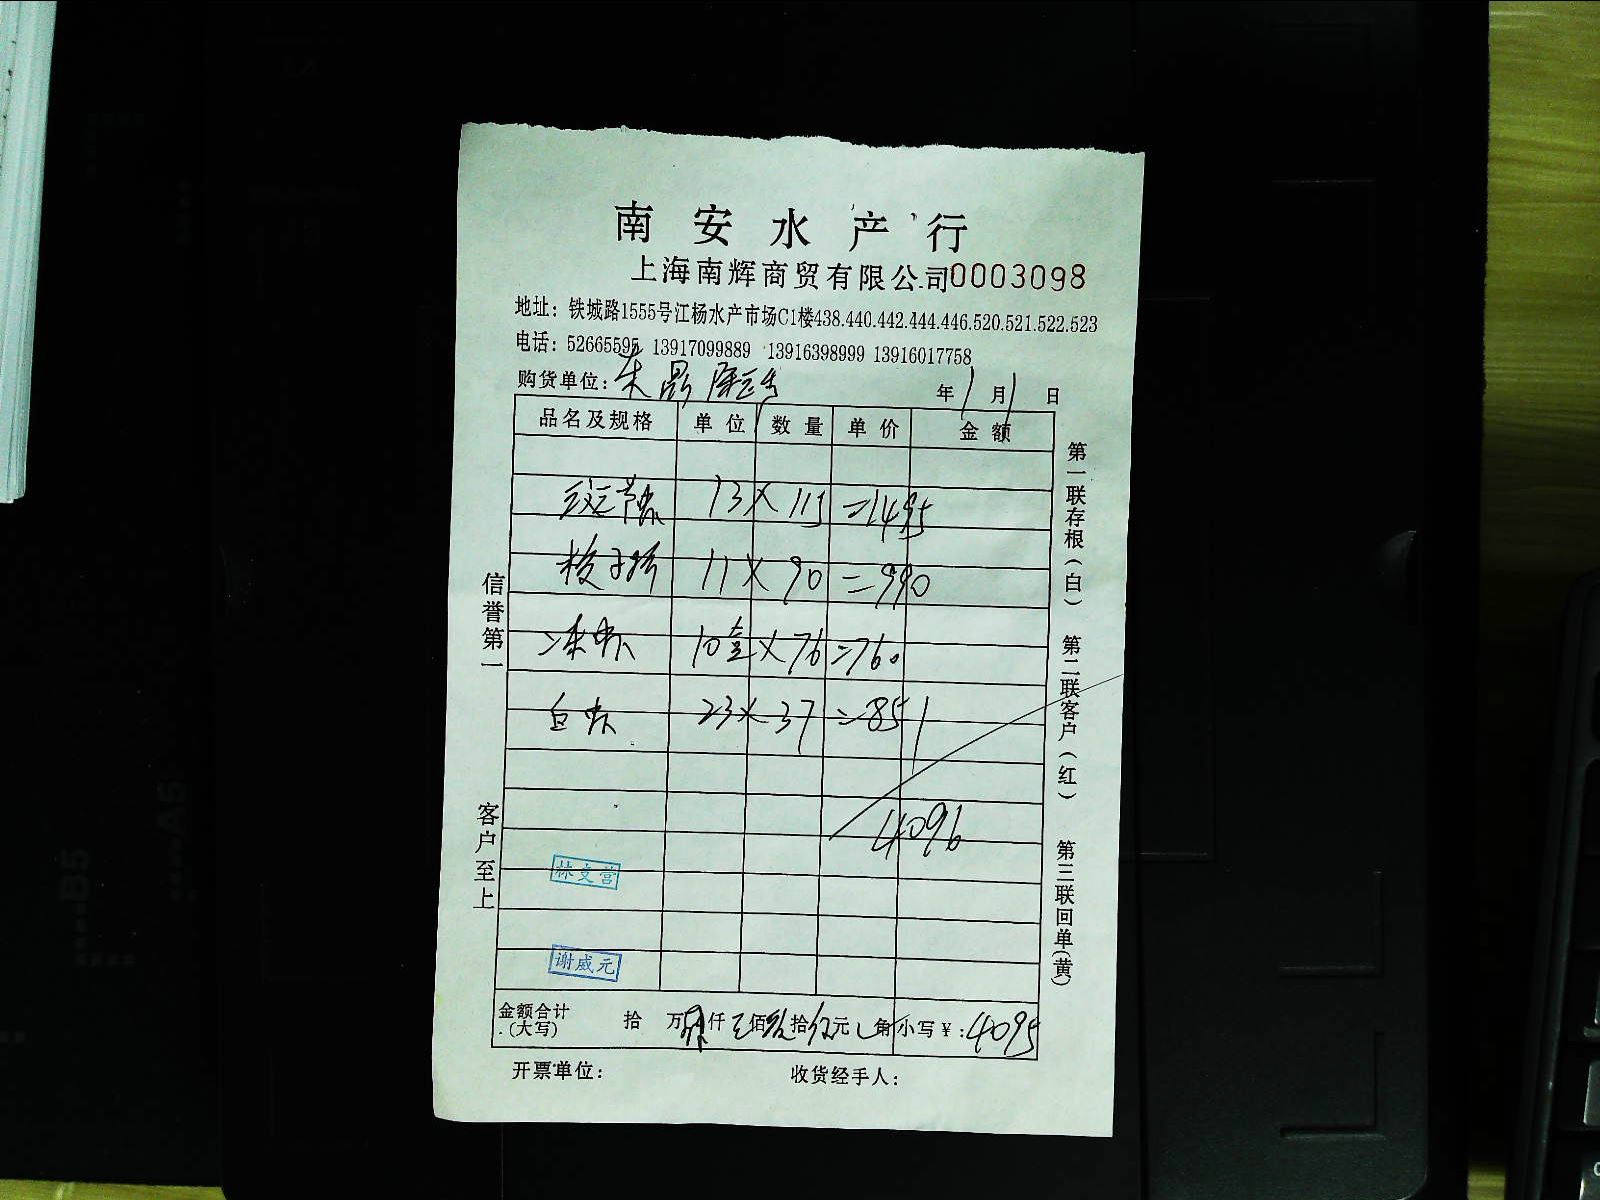 南安水产行
上海南辉商贸有限公司0003098
地址：铁城路1555号江杨水产市场C1楼438.440.442.444.446.520.521.522.523
电话：52665595 13917099889 13916398999 13916017758
购货单位： 年1月1日
品名及规格 单位 数量 单价 金额
13×115=1495
11×90=990
10 ×76=760
白虾 23×37=851
4096
林支营
谢威元
金额合计(大写) 拾万 仟 佰 拾 元 角 小写￥:4095
开票单位： 收货经手人：
信誉第一
客户至上
第一联存根（白）
第二联客户（红）
第三联回单(黄)
B5
A5